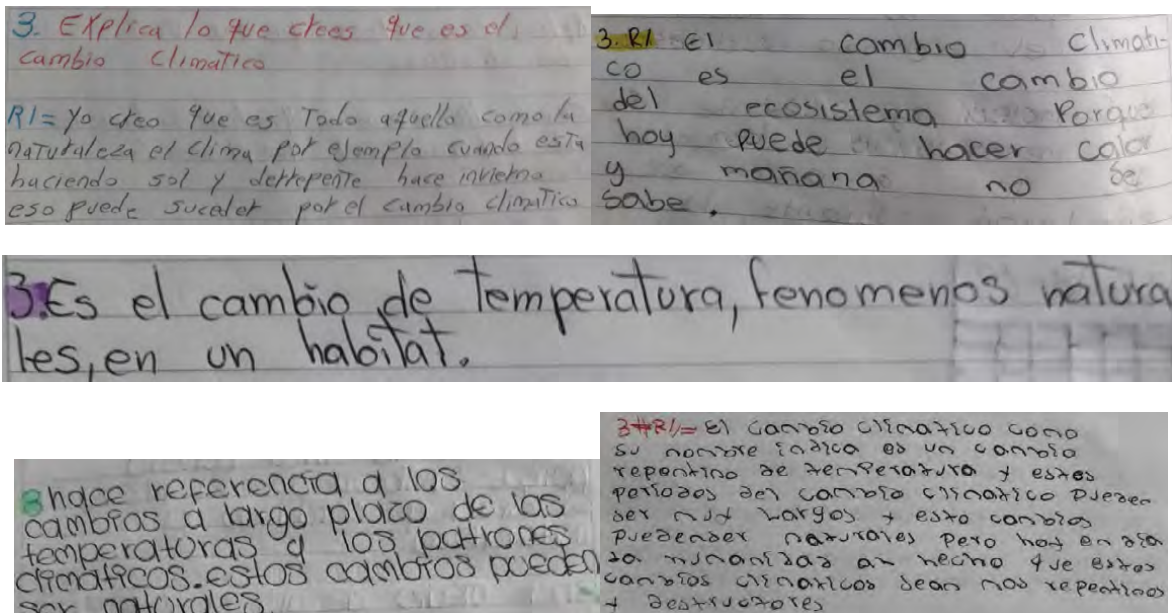 3. Explica lo que crees que es el
cambio climatico
R/= Yo creo que es Todo aquello como la
naturaleza el clima por ejemplo cuando esta
haciendo sol y derrepente hace invierno
eso puede suceder por el cambio climatico
3. R/ El cambio climati-
co es el cambio
del ecosistema Porque
hoy puede hacer calor
y mañana no se
sabe.
3. Es el cambio de temperatura, fenomenos natura
les, en un habitat.
3 hace referencia a los
cambios a largo placo de las
temperaturas y los patrones
climaticos. estos cambios pueden
ser naturales
3#R/= El cambio climatico como
su nombre indica es un cambio
repentino de temperatura y estos
periodos del cambio climatico pueden
ser muy largos y esto cambios
puedenser naturales pero hoy en dia
la humanidad an hecho que estos
cambios climaticos sean mas repentinos
y destructores